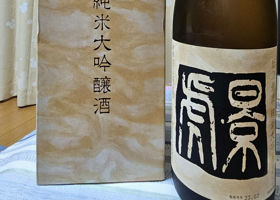 純米大吟醸酒
景虎